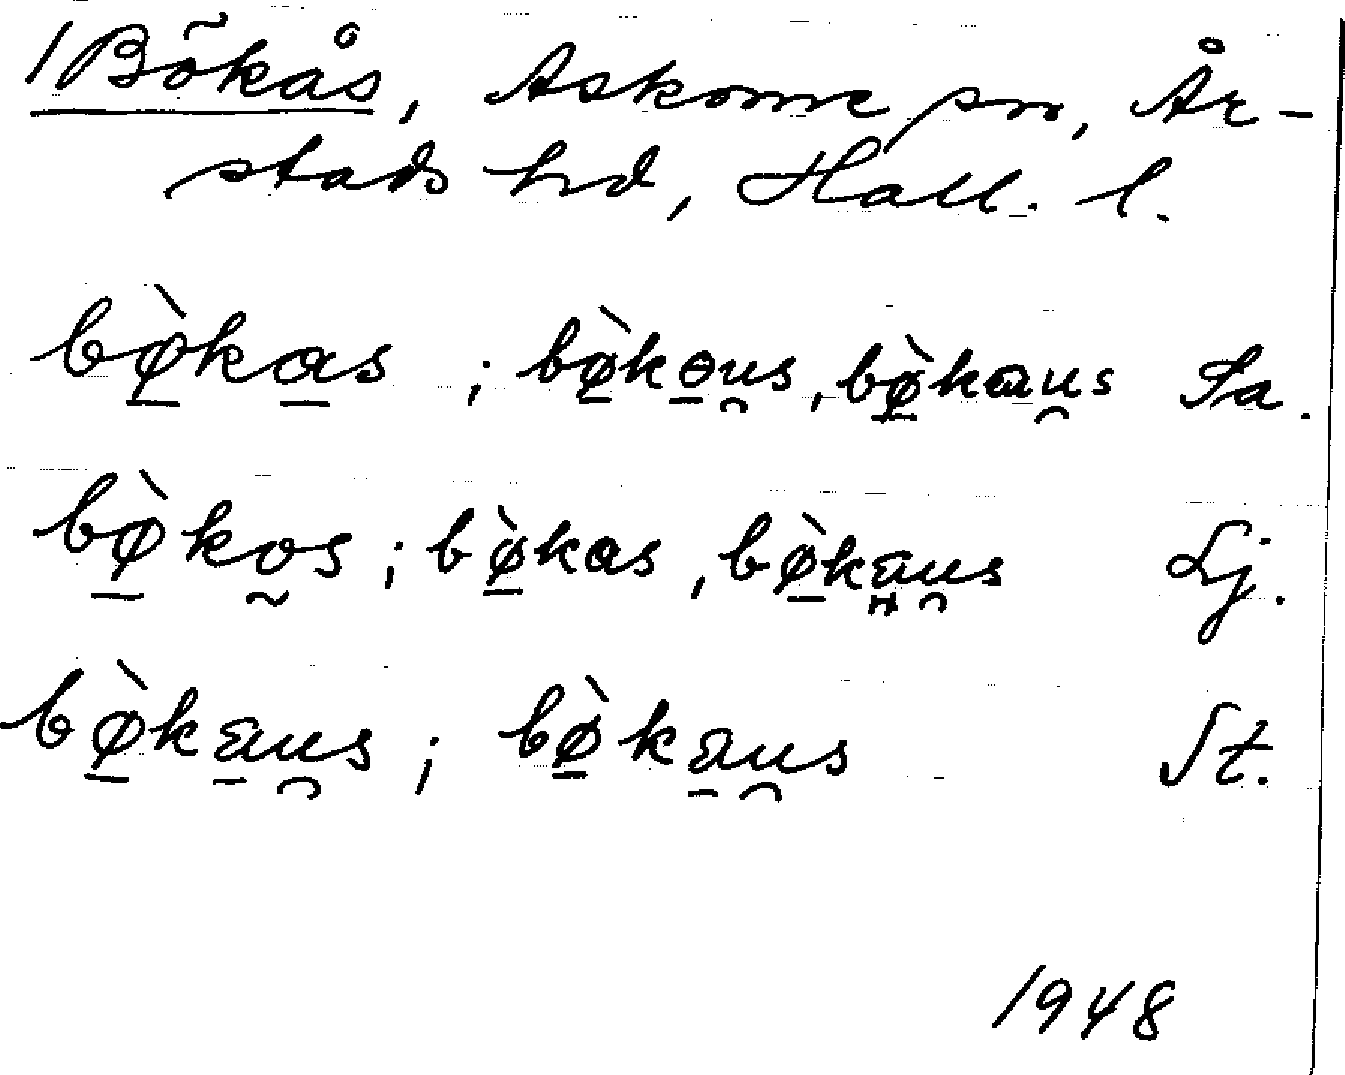 /Bökås, Askome sn, År-
stads hd, Hall. l.
bø̠̀ka̠s ; bø̠̀kɵ̠u̯s, bø̠̀kau̯s Sa.
bø̠̀ko̰s ; bø̠̀kas, bø̠̀kau̯s Lj.
bø̠̀ka̠u̯s ; bø̠̀ka̠u̯s St.
1948